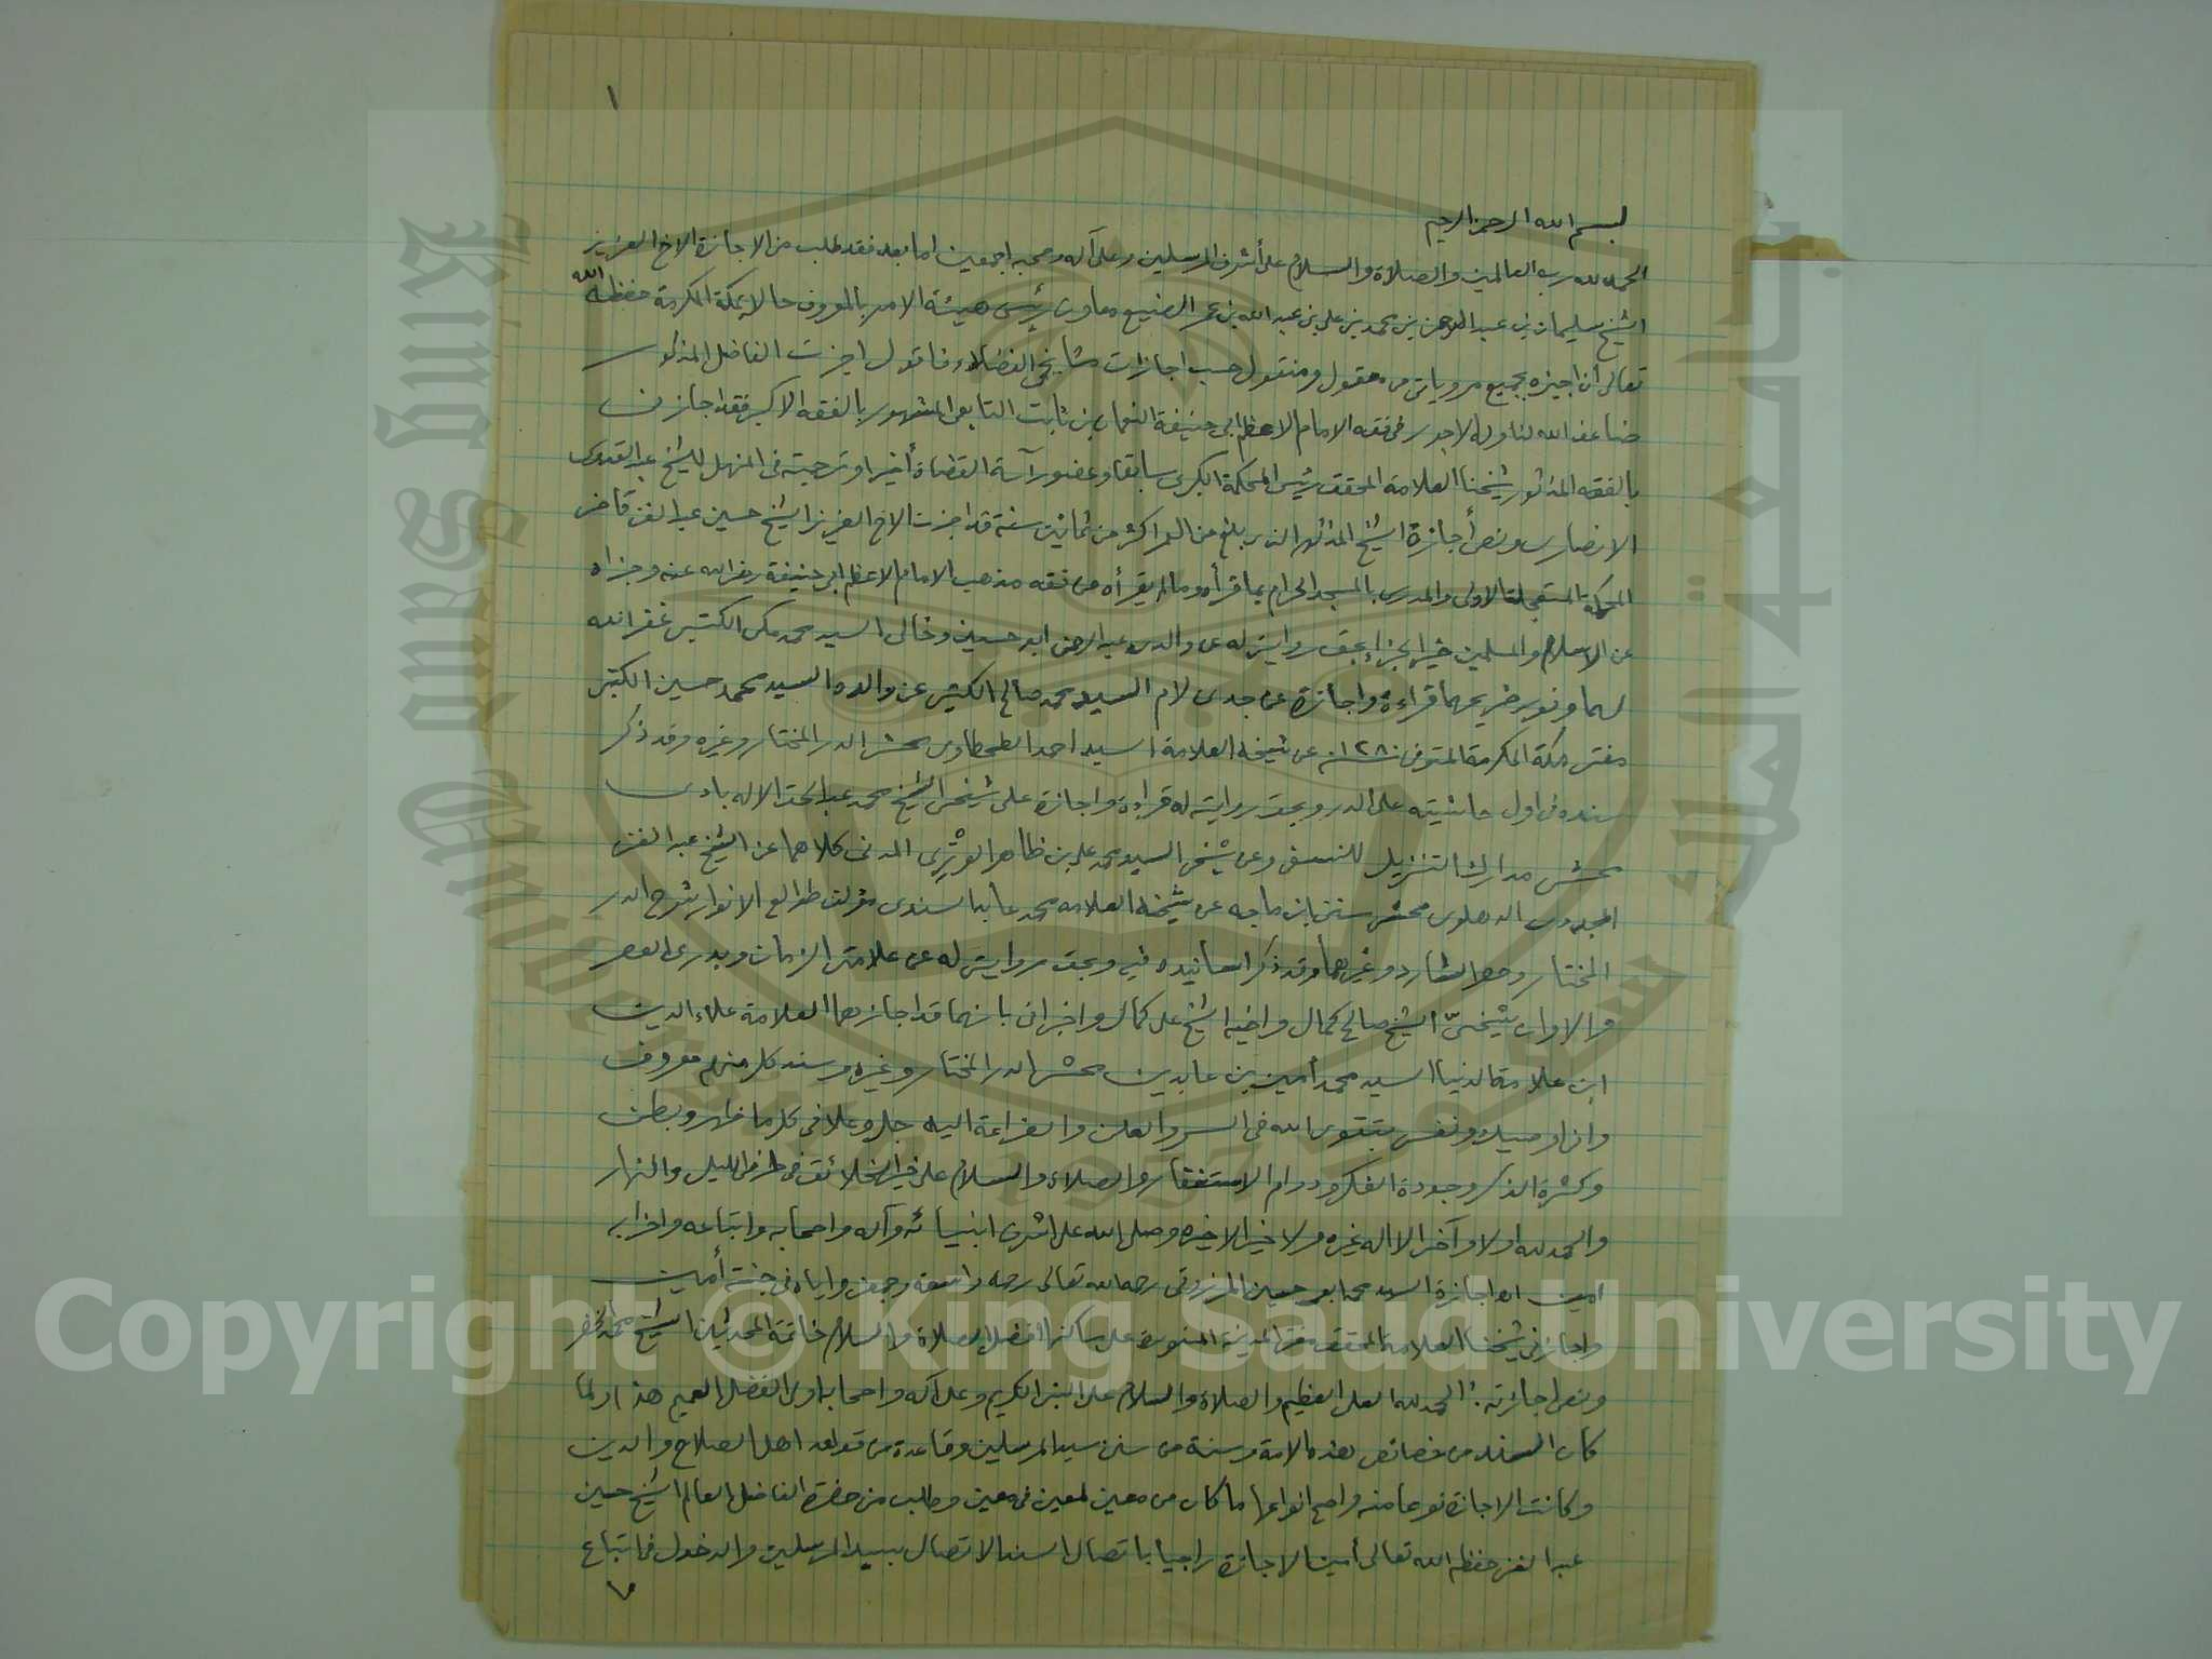 ١
بسم الله الرحمن الرحيم
الحمد لله رب العالمين والصلاة والسلام على أشرف المرسلين وعلى آله وصحبه اجمعين اما بعد فقد طلب من الاجازة الاخ العزيز
الشيخ سليمان بن عبد الرحمن بن محمد بن علي بن عبد الله بن عمر الصنيع معاون رئيس هيئة الامر بالمعروف حالا بمكة المكرمة حفظه الله
تعالى أن اجيزه بجميع مروياتى من معقول ومنقول حسب اجازات مشايخى الفضلاء فاقول اجزت الفاضل المذكور
ضاعف الله لنا وله الاجور فى فقه الامام الاعظم ابى حنيفة النعمان بن ثابت التابعى المشهور بالفقه الاكبر فقد اجازنى
بالفقه المذكور شيخنا العلامة المحقق رئيس المحكمة الكبرى سابقا وعضو رآسة القضاة أخيرا وترجمته فى المنهل للشيخ عبد القدوس
الانصارى ونص أجازة الشيخ المذكور الذى بلغ من العمر اكثر من ثمانين سنة قد اجزت الاخ العزيز الشيخ حسين عبد الغنى قاضى
المحكمة المستعجلة الاولى والمدرس بالمسجد الحرام بما قرأه ومالم يقرأه من فقه مذهب الامام الاعظم ابى حنيفة رضى الله عنه وجزاه
عن الاسلام والمسلمين خير الجزاء بحق روايتى له عن والدى عبد الرحمن ابو حسين وخالى السيد محمد مكى الكتبى غفر الله
لهما ونور ضريحهما قراءة واجازة عن جدى لام السيد محمد صالح الكتبى عن والده السيد محمد حسين الكتبى
مفتى مكة المكرمة المتوفى ١٢٨٠ عن شيخه العلامة السيد احمد الطحطاوى محشى الدر المختار وغيره وقد ذكر
سنده فى اول حاشيته على الدر وبحق روايته له قراءة واجازة على شيخى الشيخ محمد عبد الحق الاله بادى
محشى مدارك التنزيل للنسفى وعن شيخى السيد محمد على بن ظاهر الوترى المدنى كلاهما عن الشيخ عبد الغنى
المجددى الدهلوى محشى سنن ابن ماجه عن شيخه العلامه محمد عابد السندى مؤلف طوالع الانوار شرح الدر
المختار وحصر الشارد وغيرهما وقد ذكر اسانيده فيه وبحق روايتى له عن علامتى الزمان وبدرى العصر
والاوان شيخىّ الشيخ صالح كمال واخيه الشيخ على كمال واخبرانى بانهما قد اجازهما العلامة علاء الدين
ابن علامة الدنيا السيد محمد أمين بن عابدين محشى الدر المختار وغيره وسند كل منهم معروف
وانى اوصيك ونفسى بتقوى الله فى السر والعلن والضراعة اليه جل وعلا فى كل ما ظهر وبطن
وكثرة الذكر وجودة الفكر ودوام الاستغفار والصلاة والسلام على خير الخلائق فى طرفى الليل والنهار
والحمد لله اولا وآخرا لا اله غيره ولا خير الا خيره وصلى الله على اشرف انبيائه وآله واصحابه واتباعه واحزابه
امين اهـ اجازة السيد محمد ابو حسين المرزوقى رحمه الله تعالى رحمه واسعة وجمعنى واياه فى جنته أمين
واجازنى شيخنا العلامة المحقق مفتى المدينة المنورة على ساكنها افضل الصلاة والسلام خاتمة المحدثين الشيخ محمد الخضر
ونص اجازته: الحمد لله العلى العظيم والصلاة والسلام على النبى الكريم وعلى آله واصحابه اولى الفضل العميم هذا ولما
كان السند من خصائص هذه الامة وسنة من سنن سيد المرسلين وقاعدة من قواعد اهل الصلاح والدين
وكانت الاجازة نوعا منه واصح انواعها ما كان من معين لمعين فى معين وطلب من حضرة الفاضل العالم الشيخ حسين
عبد الغنى حفظه الله تعالى أمين الاجازة راجيا باتصال السند الاتصال بسيد المرسلين والدخول فى اتباع
King Saud University
جامعة الملك سعود
1957
Copyright © King Saud University